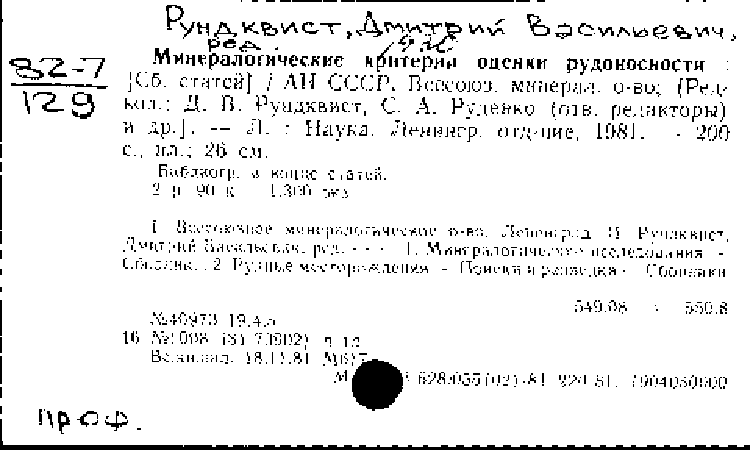 Рундквист, Дмитрий Васильевич,
ред.
82-7
129
Минералогические критерии оценки рудоносности :
[Сб. статей] / АН СССР, Всесоюз. минерал. о-во; (Ред-
кол.: Д. В. Рундквист, С. А. Руденко (отв. редакторы)
и др.]. — Л. : Наука. Ленингр. отд-ние, 1981. - 200
с., ил.; 26 см.
Библиогр. в конце статей.
2 р. 90 к. 1.300 экз.
1. Всесоюзное минералогическое о-во. Ленинград. II. Рундквист,
Дмитрий Васильевич, ред. - - - 1. Минералогические исследования -
Сборники. 2. Рудные месторождения - Поиски и разведка - Сборники
549.08 + 550.8
№40973 19.4.5
16 №
Всхкпал. 18.11.81
ПРОФ.